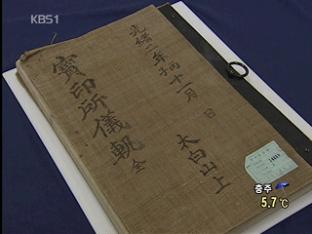 KBS1
光緖二年丙子十一月 日
太白山上
寶印所儀軌 全
충주
5.7℃